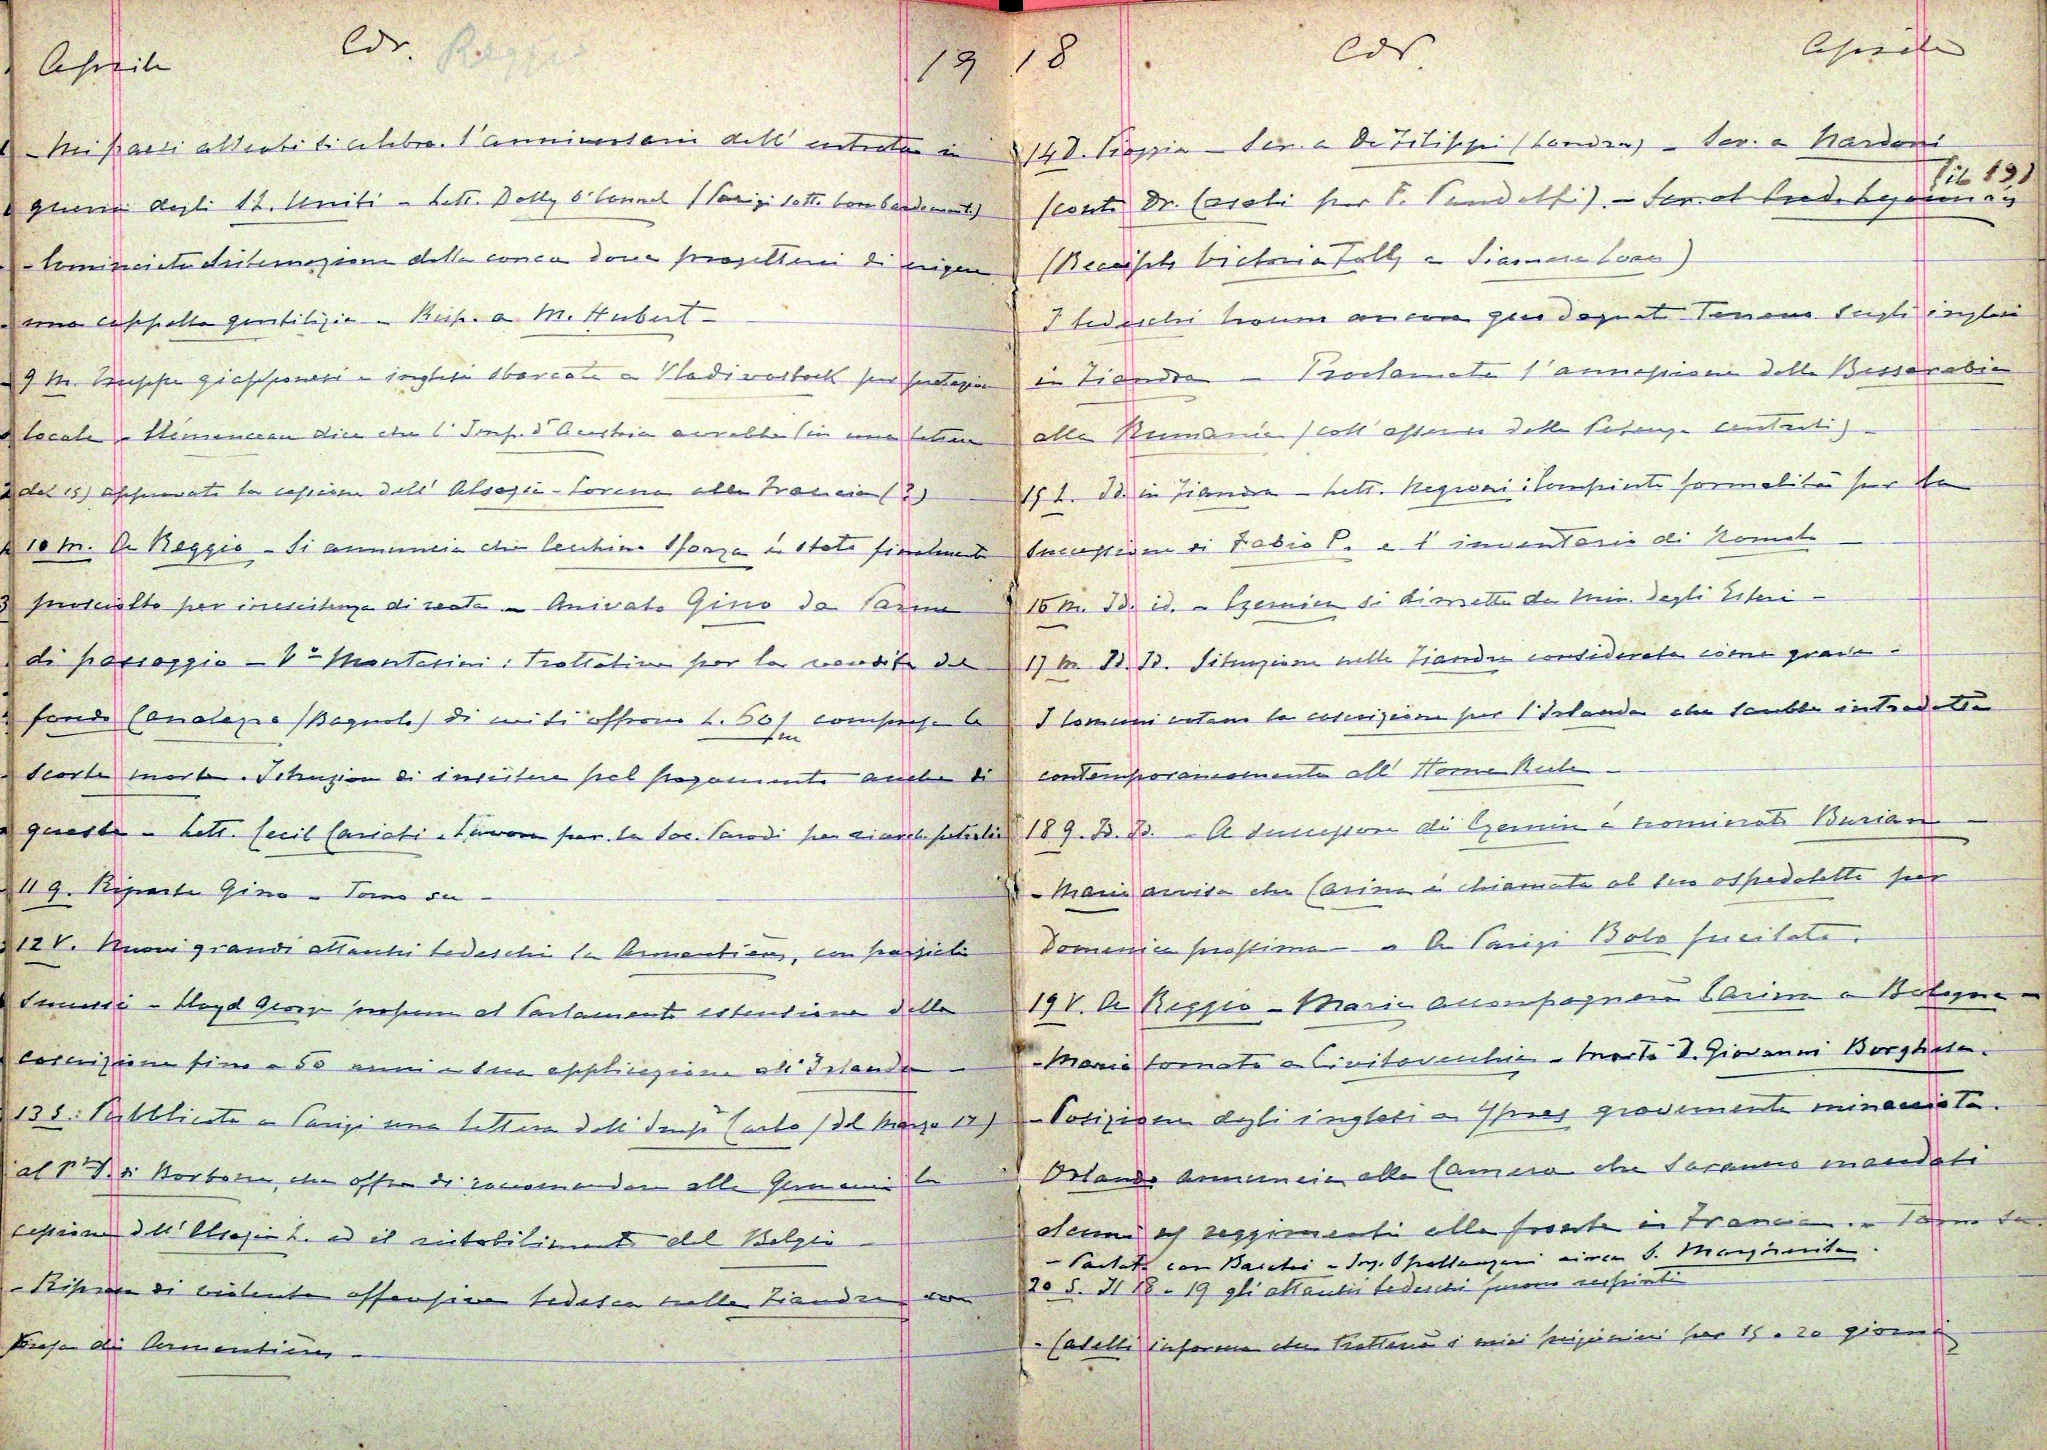 Aprile Cdr. Reggio 19
- Nei paesi alleati si celebra l'anniversario dell'entrata in
guerra degli St. Uniti - Lett. Dolly O'Connel (Parigi sotto bombardamento)
- Cominciata sistemazione della conca dove progetterei di erigere
una cappella gentilizia - Risp. a M. Hubert -
9 M. Truppe giapponesi e inglesi sbarcate a Vladivostock per protezione
locale - Clémenceau dice che l'Imp. d'Austria avrebbe (in una lettera
del 15) approvato la cessione dell'Alsazia-Lorena alla Francia (?)
10 M. A Reggio - Si annuncia che Cecchino Sforza è stato finalmente
prosciolto per inesistenza di reato - Arrivato Gino da Parma
di passaggio - Vo Montasini: trattative per la vendita del
fondo Canalazzo (Bagnolo) di cui si offrono L. 60/m comprese le
scorte morte. Istruzione di insistere pel pagamento anche di
queste - Lett. Cecil Cariati. Lavora per la Soc. Parodi per ricerche petrolio
11 g. Riparte Gino - Torno su -
12 V. Nuovi grandi attacchi tedeschi su Armentières, con parziali
successi - Lloyd George propone al Parlamento estensione della
coscrizione fino a 50 anni e sua applicazione all'Irlanda -
13 S: Pubblicata a Parigi una lettera dell'Impe Carlo (del Marzo 17)
al Pe S. di Borbone, che offre di raccomandare alla Germania la
cessione dell'Alsazia L. ed il ristabilimento del Belgio -
- Ripresa di violenta offensiva tedesca nelle Fiandre con
presa di Armentières -
18 Cdr. Aprile
14 D. Pioggia - Scr. a De Filippi (Londra) - Scr. a Nardoni
(conto Dr. Casali per F. Pandolfi). - Scr. al Cred. Lyonnais
(Receipts Victoria Falls e Siamese Loan)
I tedeschi hanno ancora guadagnato terreno sugli inglesi
in Fiandra - Proclamata l'annessione della Bessarabia
alla Rumania (coll'assenso delle Potenze centrali) -
15 L. Id. in Fiandra - Lett. Negroni: Compiute formalità per la
successione di Fabio P. e l'inventario di Nomato -
16 M. Id. id. - Czernin si dimette da Min. degli Esteri -
17 M. Id. Id. Situazione nelle Fiandre considerata come grave -
I Comuni votano la coscrizione per l'Irlanda che sarebbe introdotta
contemporaneamente all'Home Rule -
18 g. Id. Id. - A successore di Czernin è nominato Burian -
- Maria avvisa che Carina è chiamata al suo ospedaletto per
Domenica prossima - A Parigi Bolo fucilato.
19 V. A Reggio - Maria accompagnerà Carina a Bologna -
- Mario tornato a Civitavecchia - Morto D. Giovanni Borghese.
- Posizione degli inglesi a Ypres gravemente minacciata.
Orlando annuncia alla Camera che saranno mandati
alcuni reggimenti alla fronte in Francia. - Torno su.
- Parlato con Bacchi e Ing. Spallanzani circa S. Margherita.
20 S. Il 18 e 19 gli attacchi tedeschi furono respinti
- Catelli informa che tratterà i miei prigionieri per 15 o 20 giorni